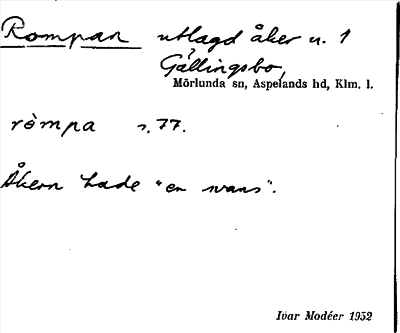 Rompan utlagd åker u. 1
Gällingsbo,
Mörlunda sn, Aspelands hd, Klm. l.
ròmpa s. 77.
Åkern hade "en svans".
Ivar Modéer 1952